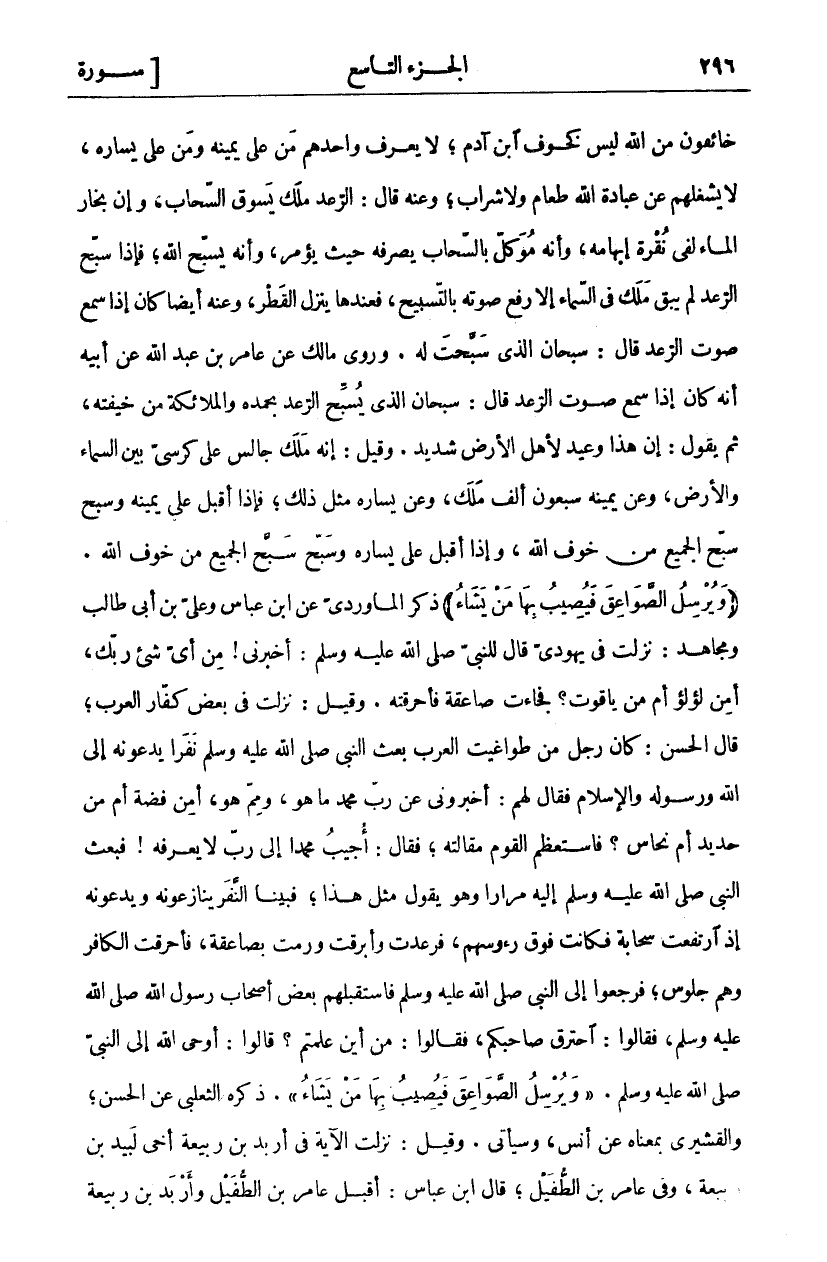 ٢٩٦ الجزء التاسع [ سورة
خائفون من الله ليس كخوف آبن آدم ؛ لا يعرف واحدهم مَن على يمينه ومَن على يساره ،
لا يشغلهم عن عبادة الله طعام ولا شراب ؛ وعنه قال : الرّعد ملَك يَسوق السّحاب ، وإن بخار
الماء لفى نُقْرة إبهامه ، وأنه مُوَكلّ بالسّحاب يصرفه حيث يؤمر ، وأنه يسبّح الله ؛ فإذا سبّح
الرّعد لم يبق مَلَك فى السّماء إلا رفع صوته بالتّسبيح ، فعندها ينزل القَطْر ، وعنه أيضا كان إذا سمع
صوت الرّعد قال : سبحان الذى سَبَّحتَ له . وروى مالك عن عامر بن عبد الله عن أبيه
أنه كان إذا سمع صوت الرّعد قال : سبحان الذى يُسَبِّح الرّعد بحمده والملائكة من خيفته ،
ثم يقول : إن هذا وعيد لأهل الأرض شديد . وقيل : إنه مَلَك جالس على كرسىّ بين السماء
والأرض ، وعن يمينه سبعون ألف مَلَك ، وعن يساره مثل ذلك ؛ فإذا أقبل على يمينه وسبح
سبّح الجميع من خوف الله ، وإذا أقبل على يساره وسَبّح سَبَّح الجميع من خوف الله .
﴿وَيُرْسِلُ الصَّوَاعِقَ فَيُصِيبُ بِهَا مَنْ يَشَاءُ﴾ ذكر الماوردىّ عن ابن عباس وعلىّ بن أبى طالب
ومجاهد : نزلت فى يهودىّ قال للنبىّ صلى الله عليه وسلم : أخبرنى ! مِن أىّ شئ ربّك ،
أمِن لؤلؤ أم من ياقوت ؟ فجاءت صاعقة فأحرقته . وقيل : نزلت فى بعض كفّار العرب ؛
قال الحسن : كان رجل من طواغيت العرب بعث النبى صلى الله عليه وسلم نَفَرا يدعونه إلى
الله ورسوله والإسلام فقال لهم : أخبرونى عن ربّ محمد ما هو ، وممّ هو ، أمِن فضة أم من
حديد أم نحاس ؟ فاستعظم القوم مقالته ؛ فقال : أُجيبُ محمدا إلى ربّ لا يعرفه ! فبعث
النبى صلى الله عليه وسلم إليه مرارا وهو يقول مثل هذا ؛ فبينا النَّفَر ينازعونه ويدعونه
إذ آرتفعت سحابة فكانت فوق رءوسهم ، فرعدت وأبرقت ورمت بصاعقة ، فأحرقت الكافر
وهم جلوس ؛ فرجعوا إلى النبى صلى الله عليه وسلم فاستقبلهم بعض أصحاب رسول الله صلى الله
عليه وسلم ، فقالوا : آحترق صاحبكم ، فقالوا : من أين علمتم ؟ قالوا : أوحى الله إلى النبىّ
صلى الله عليه وسلم . « وَيُرْسِلُ الصَّوَاعِقَ فَيُصِيبُ بِهَا مَنْ يَشَاءُ » . ذكره الثعلبى عن الحسن ؛
والقشيرى بمعناه عن أنس ، وسيأتى . وقيل : نزلت الآية فى أربد بن ربيعة أخى لَبِيد بن
ربيعة ، وفى عامر بن الطُّفَيْل ؛ قال ابن عباس : أقبل عامر بن الطُّفَيْل وأَرْبَد بن ربيعة